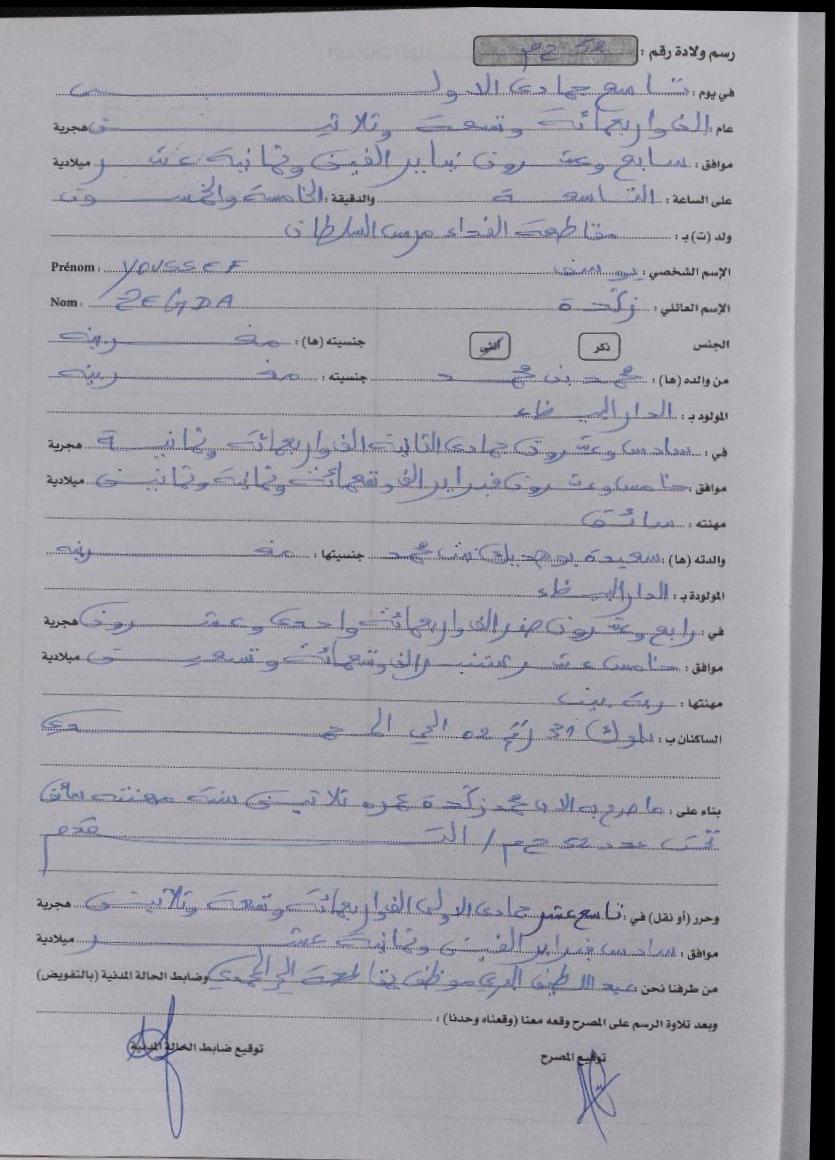 رسم ولادة رقم : 52 ح م
في يوم : تاسع جمادى الاولى
عام : الف واربعمائة وتسعة وثلاثين هجرية
موافق : سابع وعشرون يناير الفين وثمانية عشر ميلادية
على الساعة : التاسعة والدقيقة : الخامسة والخمسون
ولد (ت) بـ : مقاطعة الفداء مرس السلطان
الإسم الشخصي : يوسف Prénom : YOUSSEF
الإسم العائلي : زكدة Nom : ZEGDA
الجنس ذكر أنثى جنسيته (ها) : مغربية
من والده (ها) : محمد بن محمد جنسيته : مغربية
المولود بـ : الدار البيضاء
في : سادس وعشرون جمادى الثانية الف واربعمائة وثمانية هجرية
موافق : خامس وعشرون فبراير الف وتسعمائة وثمانية وثمانين ميلادية
مهنته : سائق
والدته (ها) : سعيدة بنت محمد جنسيتها : مغربية
المولودة بـ : الدار البيضاء
في : رابع وعشرون صفر الف واربعمائة واحدى وعشرون هجرية
موافق : خامس عشر شتنبر الف وتسعمائة وتسعين ميلادية
مهنتها : ربة بيت
الساكنان بـ : بلوك 31 رقم 02 الحي المحمدي
بناء على : ما صرح به الاب محمد زكدة عمره ثلاثين سنة مهنته سائق
تحت عدد 52 ح م /
وحرر (أو نقل) في : تاسع عشر جمادى الاولى الف واربعمائة وتسعة وثلاثين هجرية
موافق : سادس فبراير الفين وثمانية عشر ميلادية
من طرفنا نحن : عبد اللطيف موظف بمقاطعة الحي المحمدي وضابط الحالة المدنية (بالتفويض)
وبعد تلاوة الرسم على المصرح وقعه معنا (وقعناه وحدنا) :
توقيع المصرح توقيع ضابط الحالة المدنية